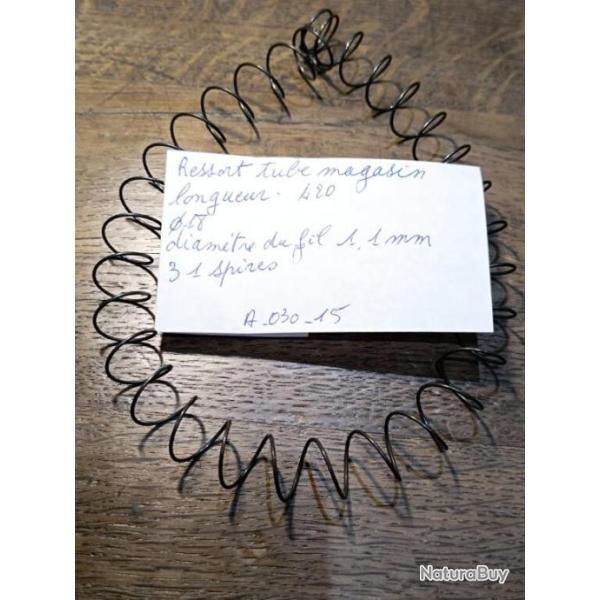 Ressort tube magasin
longueur. 420
Ø18
diamètre du fil 1,1 mm
31 spires
A_030_15
NaturaBuy